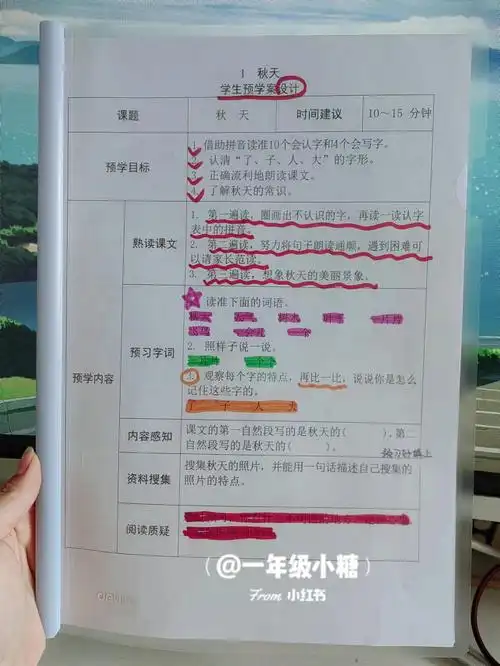 1 秋天
学生预学案设计
课题 秋 天 时间建议 10～15 分钟
预学目标
1.借助拼音读准10个会认字和4个会写字。
2.认清“了、子、人、大”的字形。
3.正确流利地朗读课文。
4.了解秋天的常识。
预学内容
熟读课文
1.第一遍读，圈画出不认识的字，再读一读认字
表中的拼音。
2.第二遍读，努力将句子朗读通顺，遇到困难可
以请家长范读。
3.第三遍读，想象秋天的美丽景象。
预习字词
读准下面的词语。
一片片
一个
2.照样子说一说。
一片片 一个个
3.观察每个字的特点，再比一比，说说你是怎么
记住这些字的。
了 子 人 大
内容感知
课文的第一自然段写的是秋天的( )，第二
自然段写的是秋天的( )。
资料搜集
搜集秋天的照片，并能用一句话描述自己搜集的
照片的特点。
阅读质疑
(@一年级小糖)
From 小红书